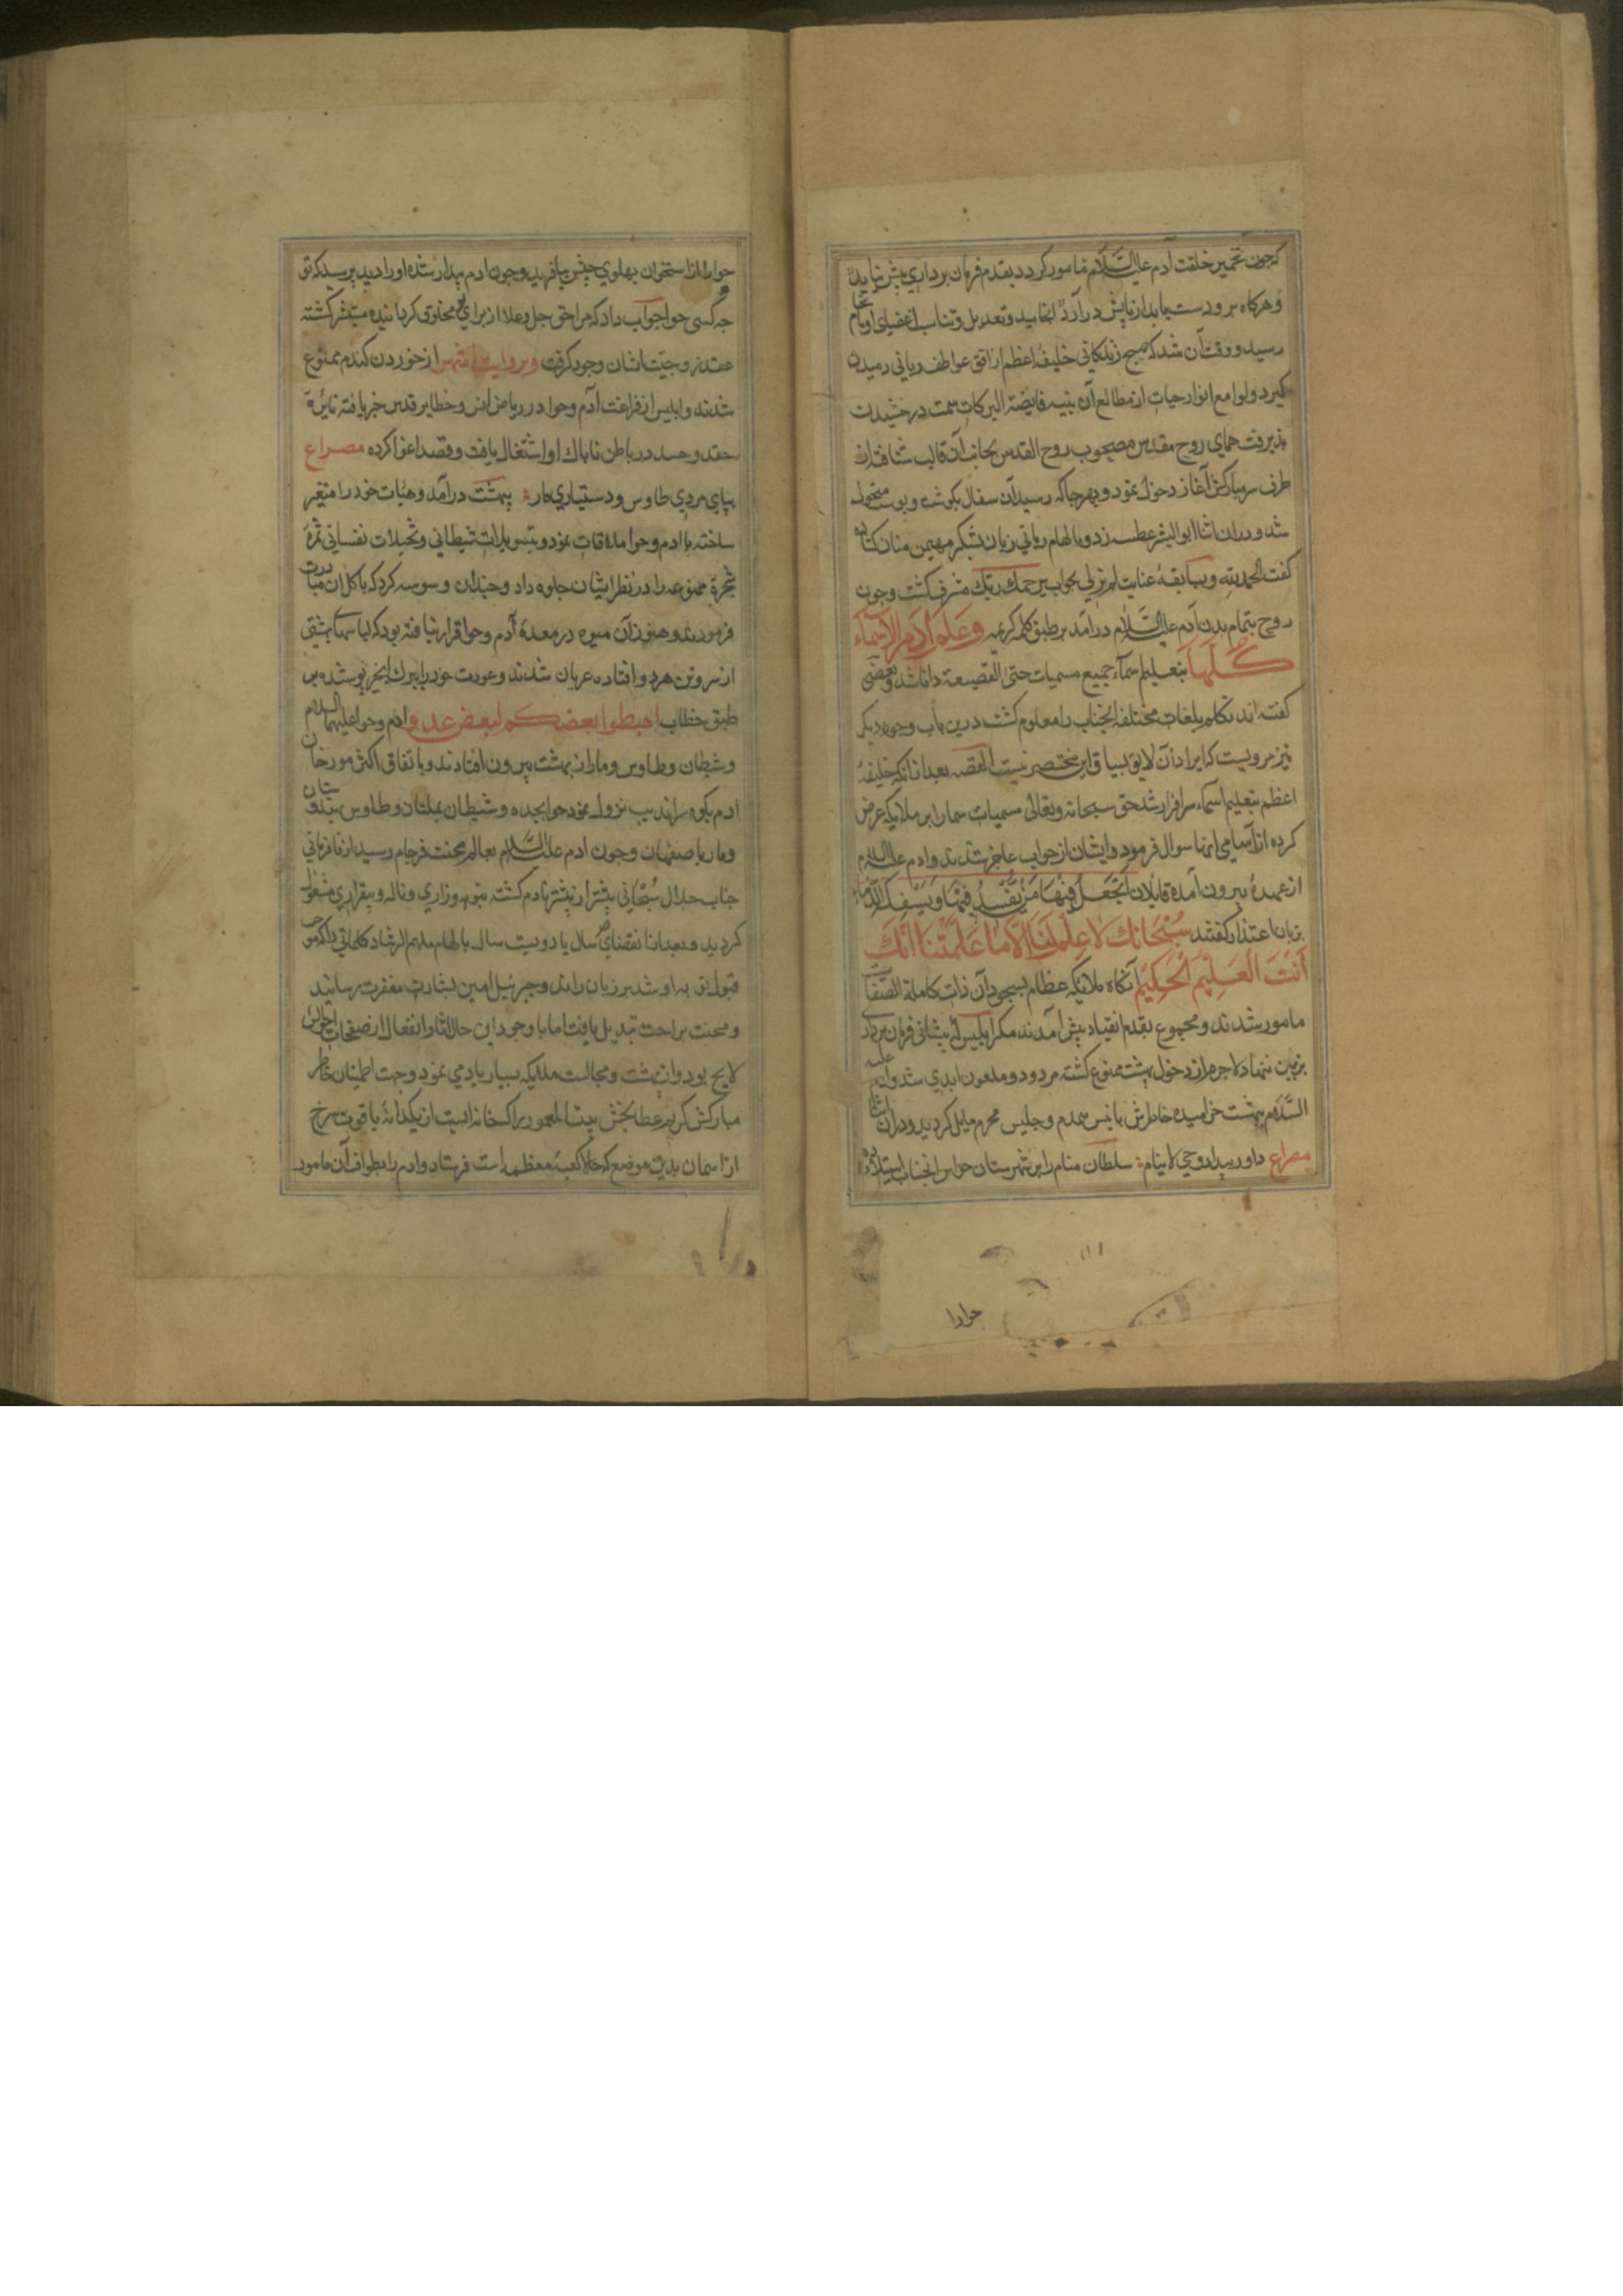 که چون تخمیر خلقت آدم علیه السلام مامور کردد بقدم فرمان برداری پیش نیاید
و هرکاه برو دست بیابد از پایش در آرد القصه چون تعدیل و تناسب اعضای او باتمام
رسید و وقت آن شد که صبح زندکانی خلیفه اعظم از افق عواطف ربانی دمیدن
کیرد و لوامع انوار حیات از مطالع آن بنیه فایضة البرکات سمت درخشیدن
پذیرفت همای روح مقدس مصحوب روح القدس بجانب آن قالب شتافت از
طرف سر مبارکش آغاز دخول نمود و بهر جا که رسید آن سفال بکوشت و پوست متحول
شد و در ان اثنا ابوالبشر عطسه زد و بالهام ربانی زبان بشکر مهیمن منان کشاده
کفت الحمدلله و بسابقه عنایت لم یزلی بجواب یرحمک ربک مشرف کشت و چون
روح بتمام بدن آدم علیه السلام درآمد بر طبق کلمه کریمه و علم ادم الاسماء
کلها بتعلیم اسماء جمیع مسمیات حتی القصیعة دانا شد و بعضی
کفته اند تکلم بلغات مختلفه انجناب را معلوم کشت درین باب وجوه دیکر
نیز مرویست که ایراد آن لایق سیاق این مختصر نیست القصه بعد از انکه خلیفه
اعظم بتعلیم اسماء سرافراز شد حق سبحانه و تعالی مسمیات سما را بر ملایکه عرض
کرده از اسامی انها سوال فرمود و ایشان از جواب عاجز شدند و ادم علیه السلام
از عهده بیرون آمده قایلان اتجعل فیها من یفسد فیها و یسفک الدماء
بزبان اعتذار کفتند سبحانک لا علم لنا الا ما علمتنا انک
انت العلیم الحکیم آنکاه ملایکه عظام بسجود آن ذات کاملة الصفات
مامور شدند و مجموع بقدم انقیاد پیش آمدند مکر ابلیس که پیشانی فرمان برداری
بر زمین ننهاد لاجرم از دخول بهشت ممنوع کشته مردود و ملعون ابدی شد و ادم علیه
السلام ببهشت خرامیده خاطرش بانیس همدم و جلیس محرم مایل کردید و در ان اثنا
مصراع داور بیدار و حی لاینام سلطان منام را بر شهرستان حواس انجناب استیلا داده
۱۱
حوا را
حوا را از استخوان پهلوی چپش بیافرید و چون ادم بیدار شده او را دید پرسید که تو
چه کسی حوا جواب داد که مرا حق جل و علا از برای تو مخلوق کردانیده مبشر کشته
عقد زوجیت ایشان وجود کرفت و بروایت اشهر از خوردن کندم ممنوع
شدند و ابلیس از فراغت آدم و حوا در ریاض انس و حظایر قدس خبر یافته نایره
حقد و حسد در باطن ناپاک او اشتعال یافت و قصد اغوا کرده مصراع
بپای مردی طاوس و دستیاری مار ببهشت درآمد و هیات خود را متغیر
ساخته با ادم و حوا ملاقات نمود و بتسویلات شیطانی و تخیلات نفسانی ثمره
شجره ممنوعه را در نظر ایشان جلوه داد و چندان وسوسه کرد که باکل آن مبادرت
فرمودند و هنوز آن میوه در معده آدم و حوا قرار نیافته بود که لباسهای بهشتی
از سر و تن هر دو افتاده عریان شدند و عورت خود را ببرک انجیر پوشیده بر
طبق خطاب اهبطوا بعضکم لبعض عدو ادم و حوا علیهما السلام
و شیطان و طاوس و مار از بهشت بیرون افتادند و باتفاق اکثر مورخان
ادم بکوه سراندیب نزول نمود حوا بجده و شیطان بملتان و طاوس بهندوستان
و مار باصفهان و چون ادم علیه السلام بعالم محنت فرجام رسید از نافرمانی
جناب جلال سبحانی بیشتر از پیشتر نادم کشته بتوبه و زاری و ناله و بیقراری مشغول
کردید و بعد از انقضای صد سال یا دویست سال بالهام ملهم الرشاد کلماتی را که موجب
قبول توبه او شد بر زبان راند و جبرئیل امین بشارت مغفرت رسانید
و محنت براحت تبدیل یافت اما با وجود این حال اثار انفعال از صفحات احوالش
لایح بود و از بهشت و مجالست ملایکه بسیار یاد می نمود و جهت اطمینان خاطر
مبارکش کریم عطابخش بیت المعمور را که خانه ایست از یکدانه یاقوت سرخ
از اسمان بدین موضع که حالا کعبه معظمه است فرستاد و ادم را بطواف آن مامور